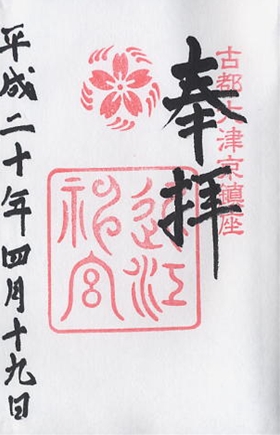 古都大津京鎮座
奉拝
近江神宮
平成二十年四月十九日